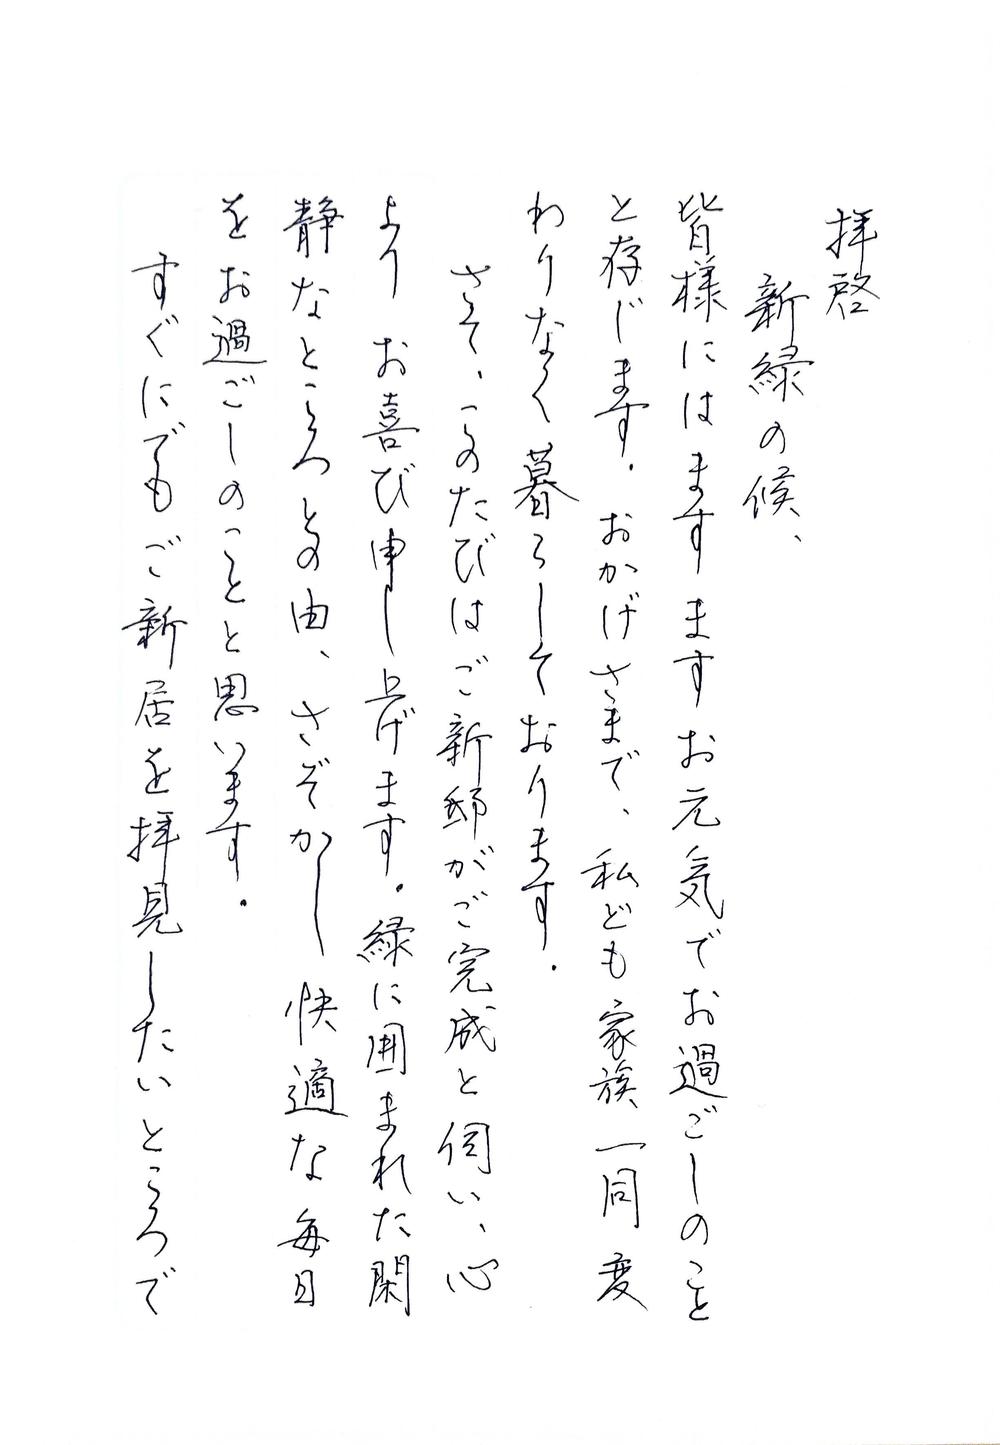 拝啓
新緑の候、
皆様にはますますお元気でお過ごしのこと
と存じます。おかげさまで、私ども家族一同変
わりなく暮らしております。
さて、このたびはご新邸がご完成と伺い、心
より お喜び申し上げます。緑に囲まれた閑
静なところとの由、さぞかし快適な毎日
をお過ごしのことと思います。
すぐにでもご新居を拝見したいところで